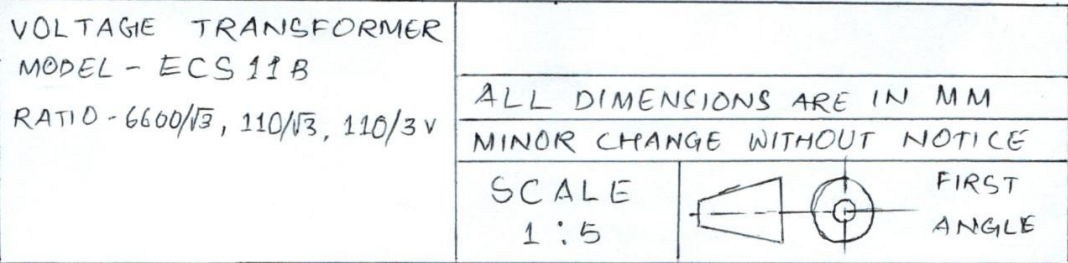 VOLTAGE TRANSFORMER
MODEL - ECS 11 B
RATIO - 6600/√3, 110/√3, 110/3 V
ALL DIMENSIONS ARE IN MM
MINOR CHANGE WITHOUT NOTICE
SCALE
1 : 5
FIRST
ANGLE